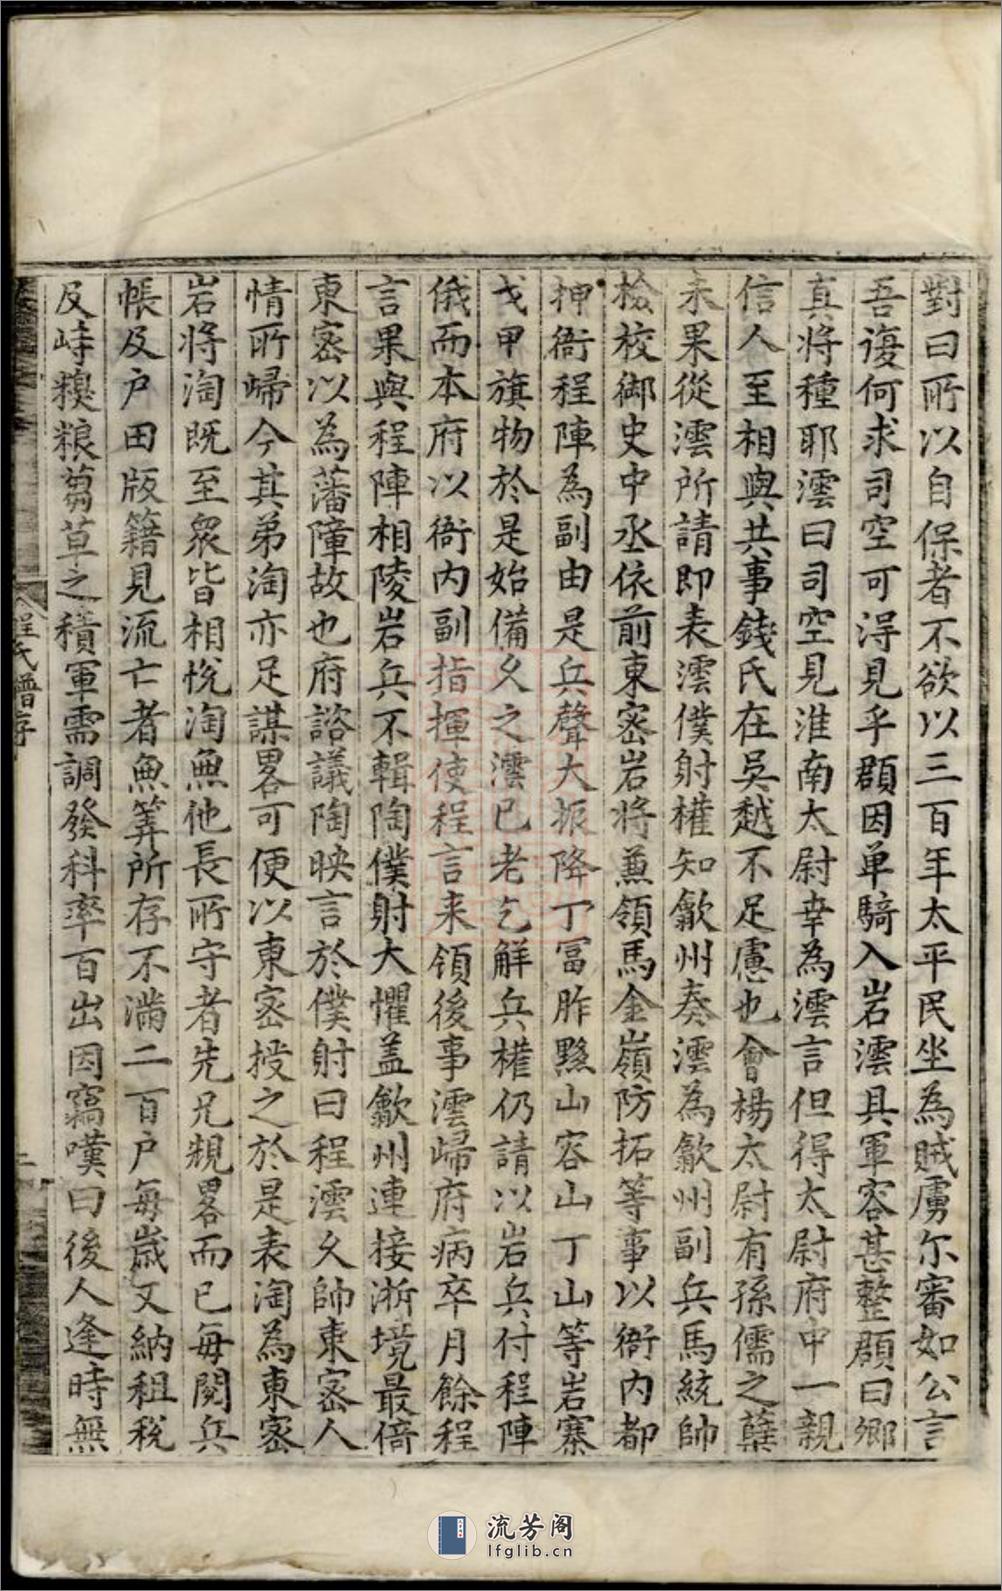 對曰所以自保者不欲以三百年太平民坐為賊虜尔審如公言
吾復何求司空可得見乎頵因单騎入岩澐具軍容甚整頵曰鄉
真將種耶澐曰司空見淮南太尉幸為澐言但得太尉府中一親
信人至相與共事錢氏在吳越不足慮也會楊太尉有孫儒之孽
未果從澐所請即表澐僕射權知歙州奏澐為歙州副兵馬統帥
檢校御史中丞依前東密岩將兼領馬金嶺防拓等事以衙内都
押衙程陣為副由是兵聲大振降丁冨胙黟山容山丁山等岩寨
戈甲旗物於是始備久之澐已老乞解兵權仍請以岩兵付程陣
俄而本府以衙内副指揮使程言来領後事澐歸府病卒月餘程
言果與程陣相陵岩兵不輯陶僕射大懼盖歙州連接浙境最倚
東密以為藩障故也府諮議陶映言於僕射曰程澐久帥東密人
情所歸今其弟淘亦足謀畧可便以東密授之於是表淘為東密
岩將淘既至衆皆相悅淘無他長所守者先兄規畧而已每閱兵
帳及户田版籍見流亡者魚筭所存不滿二百户每歲又納租税
及峙糗粮芻草之積軍需調發科率百出因竊嘆曰後人逢時無
程氏譜序
二
流芳阁
lfglib.cn